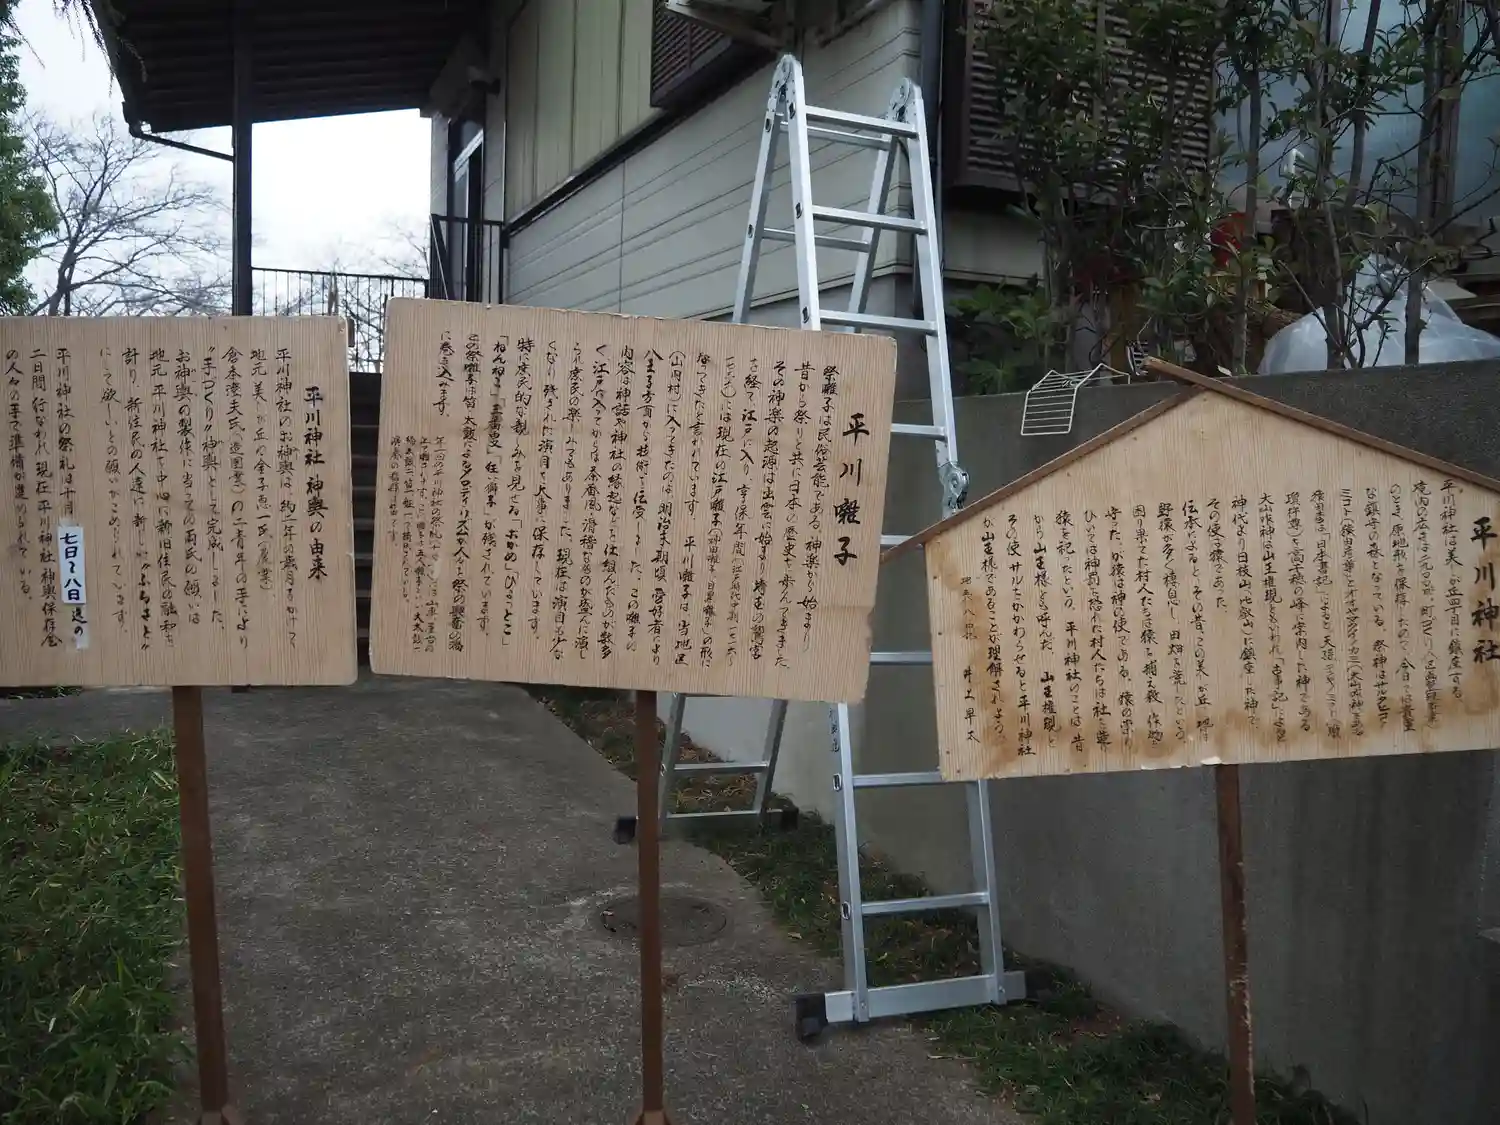 平川神社
平川神社は美しが丘四丁目に鎮座する。
のです。原地形を保存したので、今日では貴重
な鎮守の森となっている。祭神はサルタヒコ
大山咋神は山王権現ともいわれ「古事記」によると
神代より日枝山(比叡山)に鎮座した神で、
その使は猿であった。
伝承によると、その昔この美しが丘の地は
野猿が多く棲息し田畑を荒したという。
困り果てた村人たちは猿を捕え殺し作物を
守ったが猿は神の使である。猿の祟り
ひいては神罰を恐れた村人たちは社を造り
猿を祀ったという。平川神社のことは、昔
から山王様とも呼んだ。山王権現と
その使、サルをかかわらせると平川神社
が山王様であることが理解されよう。
井上早太
平川囃子
祭囃子は民俗芸能である。神楽から始まり
昔から祭りと共に日本の歴史を歩んできました。
その神楽の起源は出雲に始まり埼玉の鷲宮
を経て、江戸に入り、享保年間(江戸時代中期一七一六~
なってきたと言われています。平川囃子は当地区
(山内村)に入ってきたのは、明治末期頃、愛好者により
八王子方面から技術を伝受しました。この囃子の
内容は神話や神社の縁起などを仕組んだものが数多
く、江戸に入ってからは茶番風、滑稽なものが盛んに演じ
られ庶民の楽しみでもありました。現在は演目も少な
くなり残された演目を大事に保存しています。
特に庶民的な親しみを見せる「おかめ」「ひょっとこ」
この祭囃子は笛、太鼓によるメロディとリズムが人々を祭の興奮の渦
に巻き込みます。
平川神社神輿の由来
平川神社のお神輿は、約一年の歳月をかけて
地元美しが丘の金子忠一氏(農業)
倉本澄夫氏(造園業)の二青年の手により
〝手づくり〟神輿として完成しました。
お神輿の製作に当っての両氏の願いは
地元平川神社を中心に新旧住民の融和を
計り、新住民の人達に新しい〝ふるさと〟
にして欲しいとの願いがこめられています。
平川神社の祭礼は十月七日~八日迄の
二日間行なわれ現在平川神社神輿保存会
の人々の手で準備が進められている。